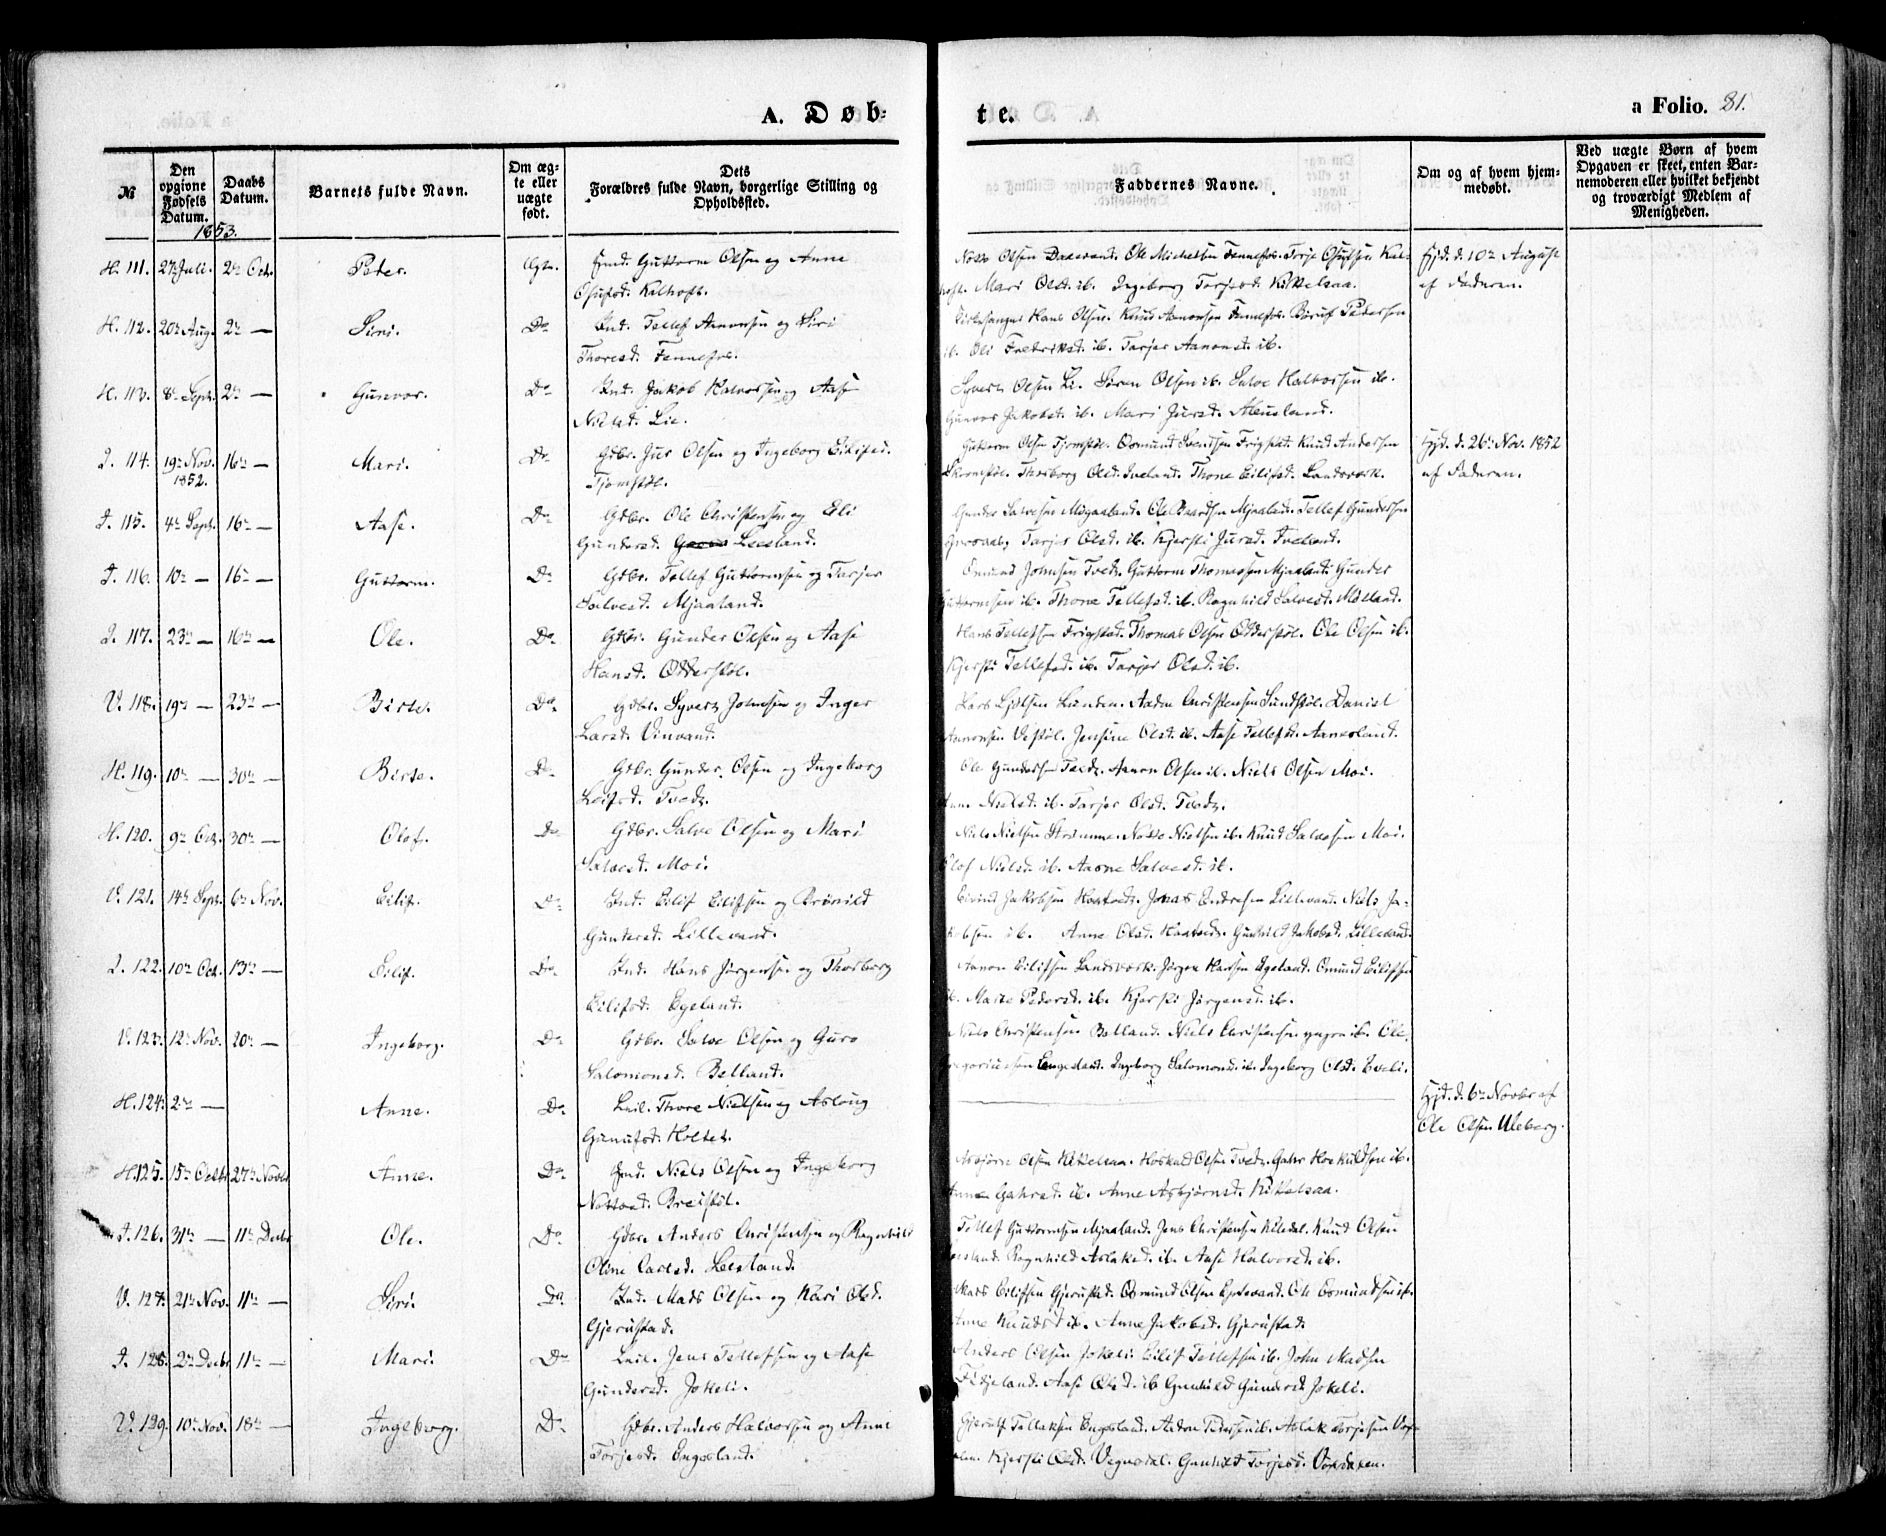 A. Døb=
te.
a Folio. 81.
№
Den opgivne Fødsels Datum.
Daabs Datum.
Barnets fulde Navn.
Om ægte eller uægte født.
Dets Forældres fulde Navn, borgerlige Stilling og Opholdssted.
Faddernes Navne.
Om og af hvem hjemmedøbt.
Ved uægte Børn af hvem Opgaven er skeet, enten Barnemoderen eller hvilket bekjendt og troværdigt Medlem af Menigheden.
1853.
H. 111. 27de Juli. 2de Oct. Peter. Ægte. Ind. Guttorm Olsen og Anne
Osufsd. Kalhoft.
Notto Olsen Ole Michelsen Fennefos. Torje Osufsen Kal-
hoft. Mari Olsd. ib. Ingeborg Torjesd. Kittelsaa.
Hjd. d. 10de August
af Faderen.
H. 112. 20de Aug. 2de — Siri. Do Ind. Tellef Aanonsen og Siri
Thoresd. Fennefos.
Kirkesanger Hans Olsen. Knud Aanonsen Fennefos. Pedersen
ib. Oli Fredriksd. ib. Tarjer Aanonsd. ib.
H. 113. 8de Sept. 2de — Gunvor. Do Ind. Jakob Halvorsen og Aase
Nielsd. Lie.
Syvert Olsen Li. Søren Olsen ib. Salve Halvorsen ib.
Gunvor Jakobsd. ib. Mari Jursd.
I. 114. 19de Nov. 1852. 16de — Mari. Do Gdbr. Jur Olsen og Ingeborg Eilifsd.
Tjomstøl.
Guttorm Olsen Tjomstøl. Osmund Svendsen Frigstad. Knud Andersen
Thorborg Olsd. Iveland. Thone Eilifsd. Landsverk.
Hjd. d. 26de Nov. 1852
af Faderen.
I. 115. 4de Sept. 16de — Aase. Do Gdbr. Ole Christensen og Eli
Gundersd. Leesland.
Gunder Salvesen Mjaaland. Ole Mjaaland. Tellef Gundersen
Tarjer Olsd. ib. Kjersti Jursd. Iveland.
I. 116. 10de — 16de — Guttorm. Do Gdbr. Tellef Guttormsen og Tarjer
Salvesd. Mjaaland.
Omund Johnsen Tvedt. Guttorm Thomassen Mjaaland. Gunder
Guttormsen ib. Thone Tellefsd. ib. Ragnhild Salvesd. Møland.
I. 117. 23de — 16de — Ole. Do Gdbr. Gunder Olsen og Aase
Hansd. Odderstøl.
Hans Tellefsen Frigstad. Thomas Olsen Odderstøl. Ole Olsen ib.
Kjersti Tellefsd. ib. Tarjer Olsd. ib.
V. 118. 19de — 23de — Birte. Do Gdbr. Syvert Johnsen og Inger
Larsd. Vinvand.
Lars Lunden. Aadne Christensen Sundstøl. Daniel
Aanonsen Vestøl. Jensine Olsd. ib. Aase Tellefsd. Aaneland.
H. 119. 10de — 30de — Birte. Do Gdbr. Gunder Olsen og Ingeborg
Leifsd. Tvedt.
Ole Gundersen Tvedt. Aanon Olsen ib. Niels Olsen Moi.
Anne Nielsd. ib. Tarjer Olsd. Tvedt.
H. 120. 9de Oct. 30de — Olof. Do Gdbr. Salve Olsen og Mari
Salvesd. Moi.
Niels Nielsen Strømme. Notto Nielsen ib. Knud Salvesen Moi.
Olof Nielsd. ib. Aasne Salvesd. ib.
V. 121. 14de Sept. 6te Nov. Eilif. Do Ind. Eilif Eilifsen og Brønild
Gundersd. Lillevand.
Eivind Jakobsen Haatvedt. Jonas Endresen Lillevand. Niels Ja-
kobsen ib. Anne Olsd. Haatvedt. Gunhild Jakobsd. Lillevand.
I. 122. 10de Oct. 13de — Eilif. Do Ind. Hans Jørgensen og Thorborg
Eilifsd. Egeland.
Aanon Eilifsen Landsverk. Jørgen Hansen Egeland. Omund Eilifsen
ib. Marte Pedersd. ib. Kjersti Jørgensd. ib.
V. 123. 12te Nov. 20de — Ingeborg. Do Gdbr. Salve Olsen og Guro
Salomonsd. Belland.
Niels Christensen Belland. Niels Christensen yngre ib. Ole
Gregoriussen Engesland. Ingeborg Salomonsd. ib. Ingeborg Olsd.
H. 124. 2de — Anne. Do Leil. Thore Nielsen og Asloug
Gunufsd. Holtet.
Hjd. d. 6te Novbr af
Ole Olsen Uleberg.
H. 125. 15de Octbr 27de Novbr Anne. Do Ind. Niels Olsen og Ingeborg
Nottosd. Breistøl.
Asbjørn Olsen Kittelsaa. Høskuld Olsen Tvedt. Gahr Høskuldsen ib.
Anne Gahrsd. ib. Anne Asbjørnsd. Kittelsaa.
I. 126. 31te — 11te Decbr Ole. Do Gdbr. Anders Christensen og Ragnhild
Oline Carlsd. Leesland.
Tellef Guttormsen Mjaaland. Jens Christensen Kiledal. Knud Olsen
Leesland. Ragnhild Aslaksd. ib. Aase Halvorsd. ib.
V. 127. 21de Nov. 11te — Siri. Do Ind. Mads Olsen og Kari Olsd.
Gjerustad.
Mads Eilifsen Gjerustad. Osmund Olsen Ole Osmundsen ib.
Anne Knudsd. ib. Anne Jakobsd. Gjerustad.
I. 128. 2de Decbr 11te — Mari. Do Leil. Jens Tellefsen og Aase
Gundersd. Jokeli.
Anders Olsen Jokeli. Eilif Tellefsen ib. John Madsen
Fidjeland. Aase Olsd. ib. Gunhild Gundersd. Jokeli.
V. 129. 10de Nov. 18de — Ingeborg. Do Gdbr. Anders Halvorsen og Anne
Torjesd. Engesland.
Gjerulf Tellefsen Engesland. Aadne Pedersen ib. Aslak Torjesen
Kjersti Olsd. Vegusdal. Gunhild Torjesd.